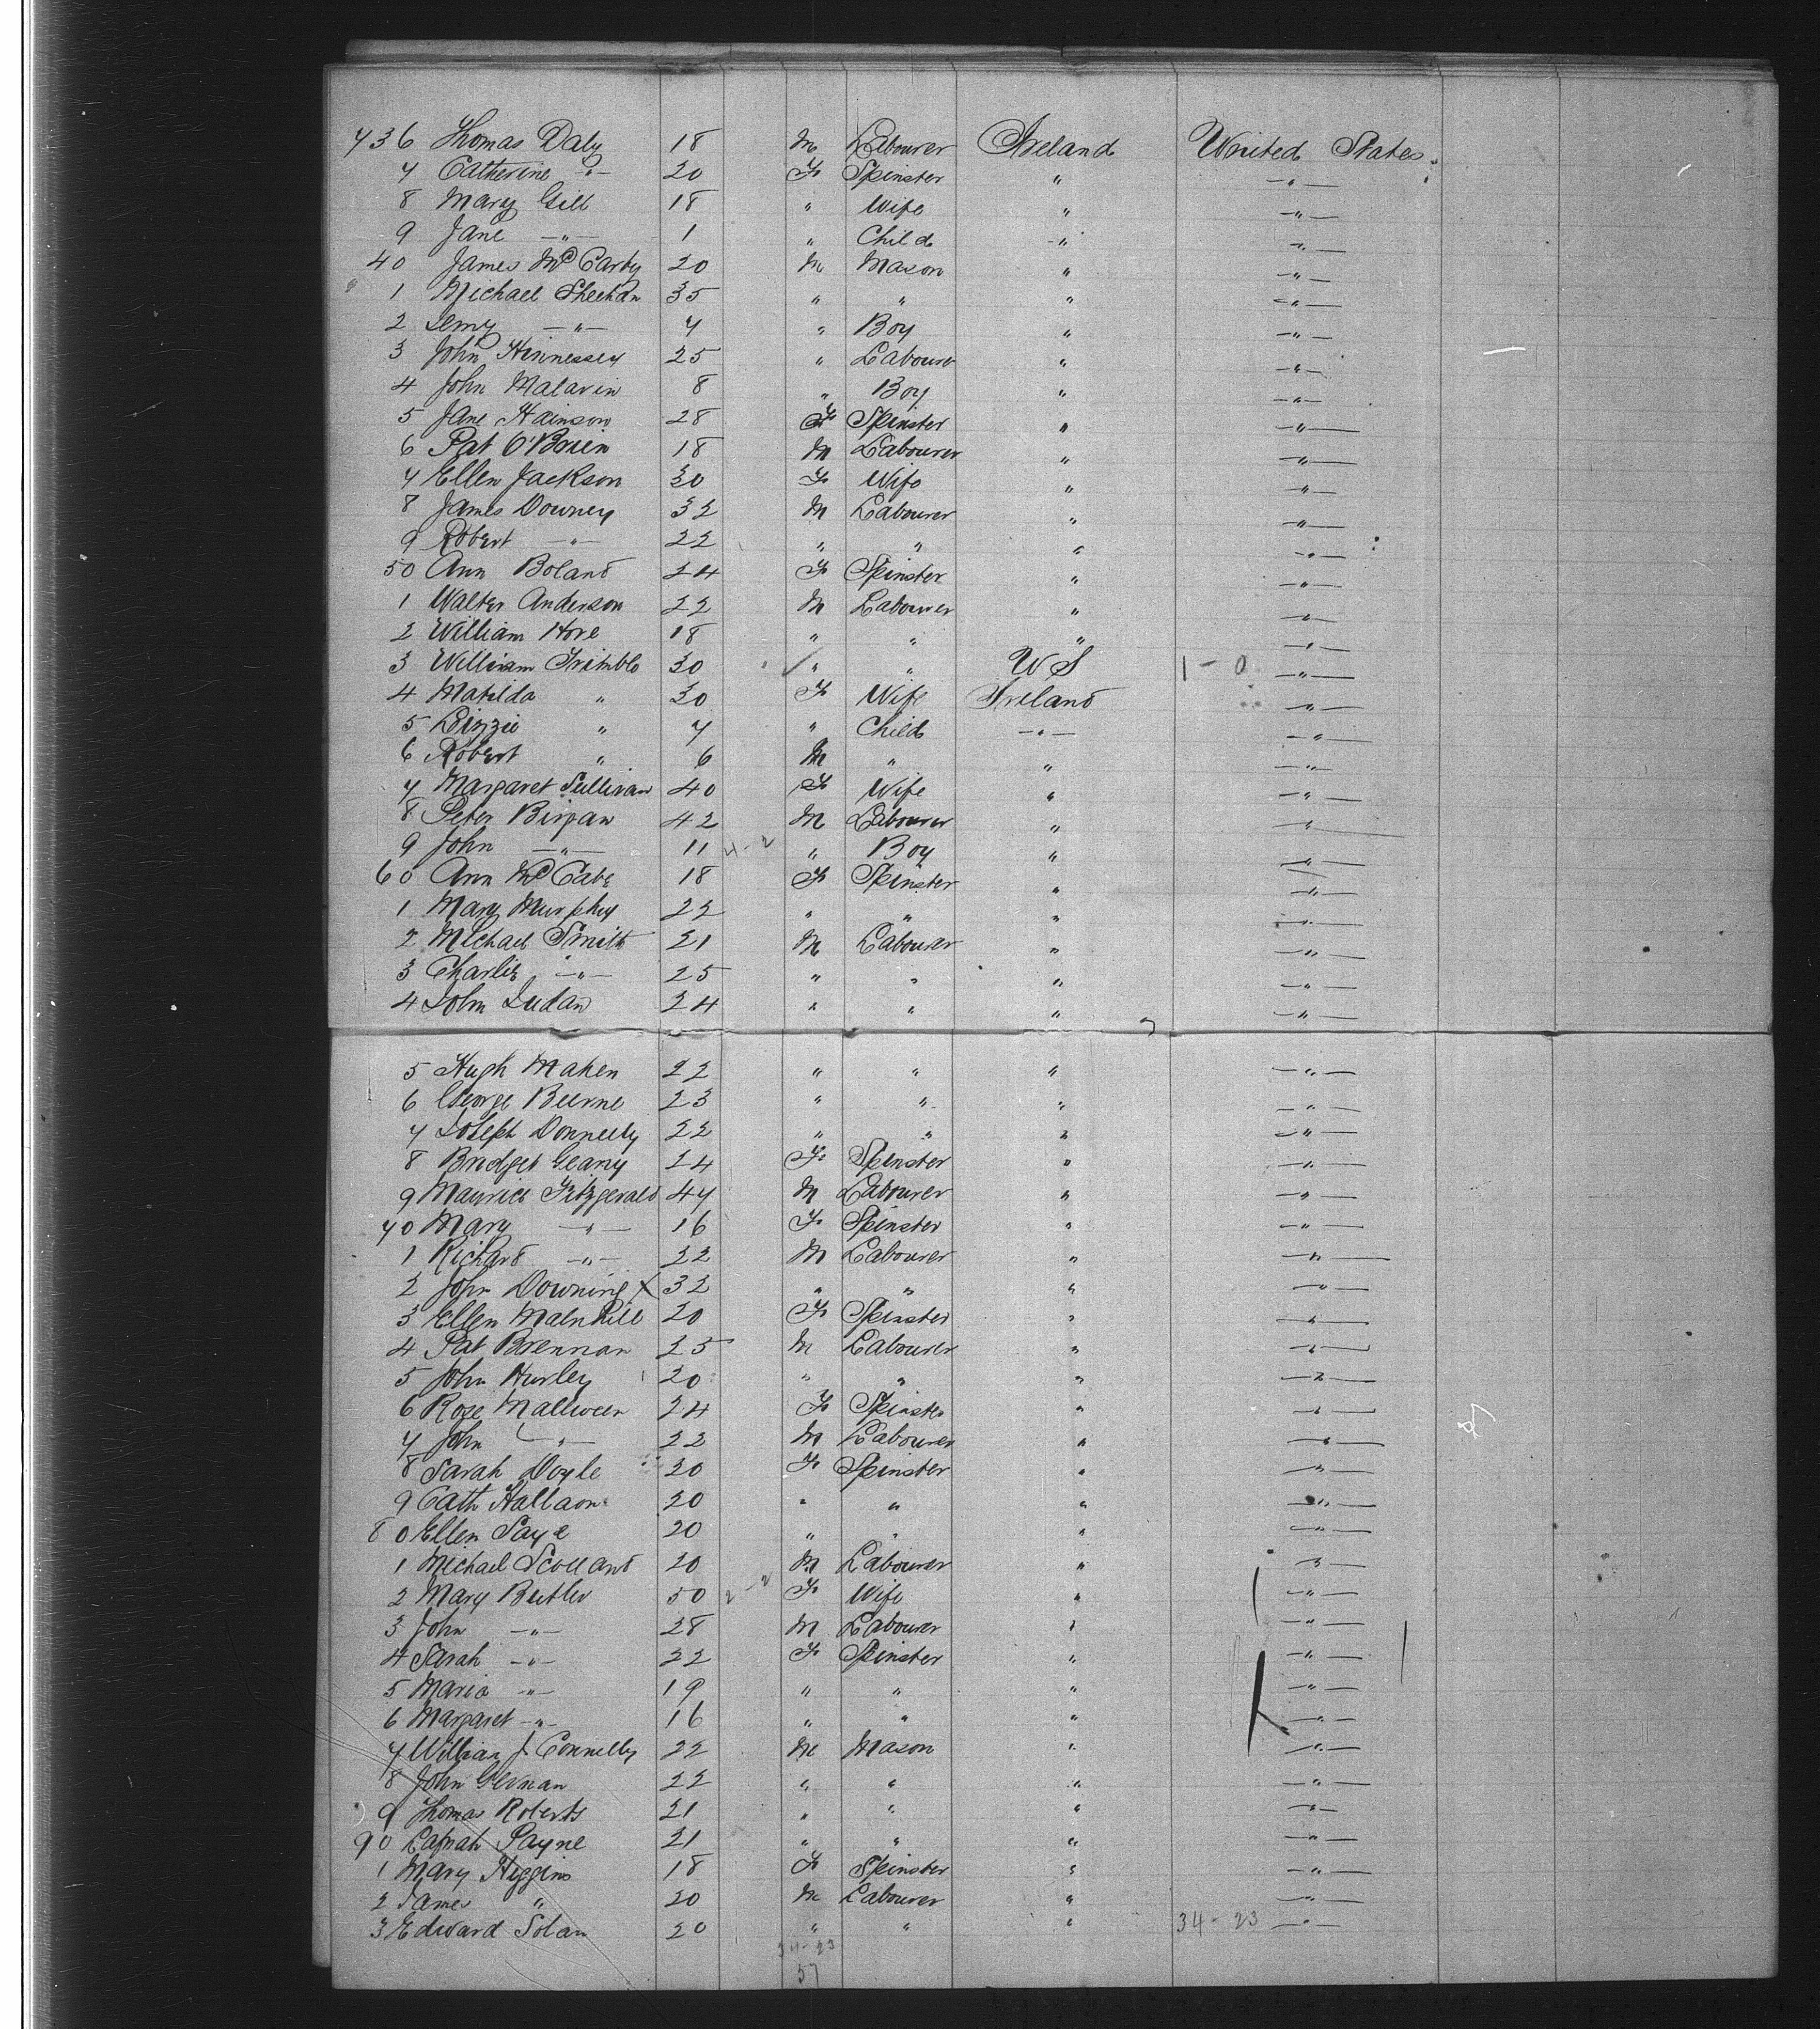 736 Thomas Daly 18 M Labourer Ireland United States
7 Catherine -"- 20 F Spinster " -"-
8 Mary Gill 18 " Wife " -"-
9 Jane -"- 1 " Child -" -"-
40 James McCarty 20 M Mason " -"-
1 Michael Sheehan 35 " " " -"-
2 Jerry -"- 7 " Boy " -"-
3 John Hinnessey 25 " Labourer " -"-
4 John Malavin 8 " Boy " -"-
5 Jane Hainson 28 F Spinster " -"-
6 Pat O'Brien 18 M Labourer " -"-
7 Ellen Jackson 30 F Wife " -"-
8 James Downey 32 M Labourer " -"-
9 Robert -"- 22 " " " -"-
50 Ann Boland 24 F Spinster " -"-
1 Walter Anderson 22 M Labourer " -"-
2 William Hore 18 " " " -"-
3 William Trimble 30 " " U S 1 - 0 -"-
4 Matilda " 30 F Wife Ireland -"-
5 Lizzie " 7 " Child -"- -"-
6 Robert " 6 M " " -"-
7 Margaret Sullivan 40 F Wife " -"-
8 Peter Birgan 42 M Labourer " -"-
9 John -"- 11 4-2 " Boy " -"-
60 Ann McCabe 18 F Spinster " -"-
1 Mary Murphy 22 " " " -"-
2 Michael Smith 21 M Labourer " -"-
3 Charlie -"- 25 " " " -"-
4 John Ludan 24 " " " -"-
5 Hugh Mahen 22 " " " -"-
6 George Beirne 23 " " " -"-
7 Joseph Donnelly 22 " " " -"-
8 Bridget Geany 24 F Spinster " -"-
9 Maurice Fitzgerald 47 M Labourer " -"-
70 Mary -"- 16 F Spinster " -"-
1 Richard -"- 22 M Labourer " -"-
2 John Downing X 32 " " " -"-
3 Ellen 20 F Spinster " -"-
4 Pat Brennan 25 M Labourer " -"-
5 John Hurley 20 " " " -"-
6 Rose 24 F Spinster " -"-
7 John -"- 22 M Labourer " -"-
8 Sarah Doyle 20 F Spinster " -"-
9 Cath Hallaon 20 " " " -"-
80 Ellen Saye 20 " " " -"-
1 Michael Scolland 20 M Labourer " -"-
2 Mary Butler 50 2-2 F Wife " -"-
3 John -"- 28 M Labourer " -"-
4 Sarah -"- 22 F Spinster " -"-
5 Maria -"- 19 " " " -"-
6 Margaret -"- 16 " " " -"-
7 William J Connelly 22 M Mason " -"-
8 John 22 " " " -"-
9 Thomas Roberts 21 " " " -"-
90 Payne 21 " " " -"-
1 Mary Higgins 18 F Spinster " -"-
2 James " 20 M Labourer " -"-
3 Edward Solan 20 " " " 34-23 -"-
34-23
57